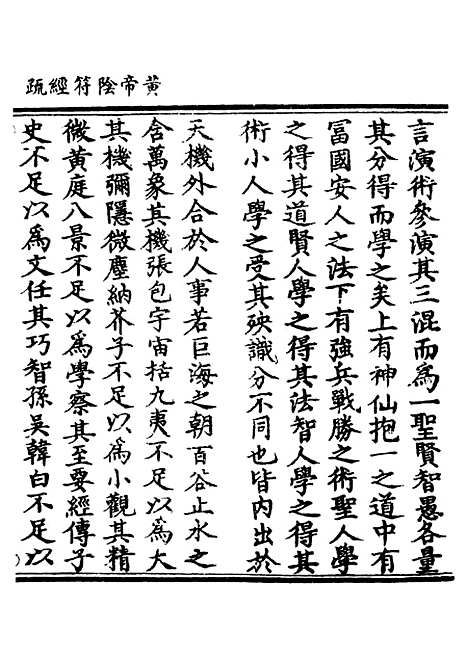 黄帝陰符經疏
言演術參演其三混而爲一聖賢智愚各量
其分得而學之矣上有神仙抱一之道中有
冨國安人之法下有強兵戰勝之術聖人學
之得其道賢人學之得其法智人學之得其
術小人學之受其殃識分不同也皆内出於
天機外合於人事若巨海之朝百谷止水之
含萬象其機張包宇宙括九夷不足以爲大
其機彌隱微塵納芥子不足以爲小觀其精
微黄庭八景不足以爲學察其至要經傳子
史不足以爲文任其巧智孫吴韓白不足以